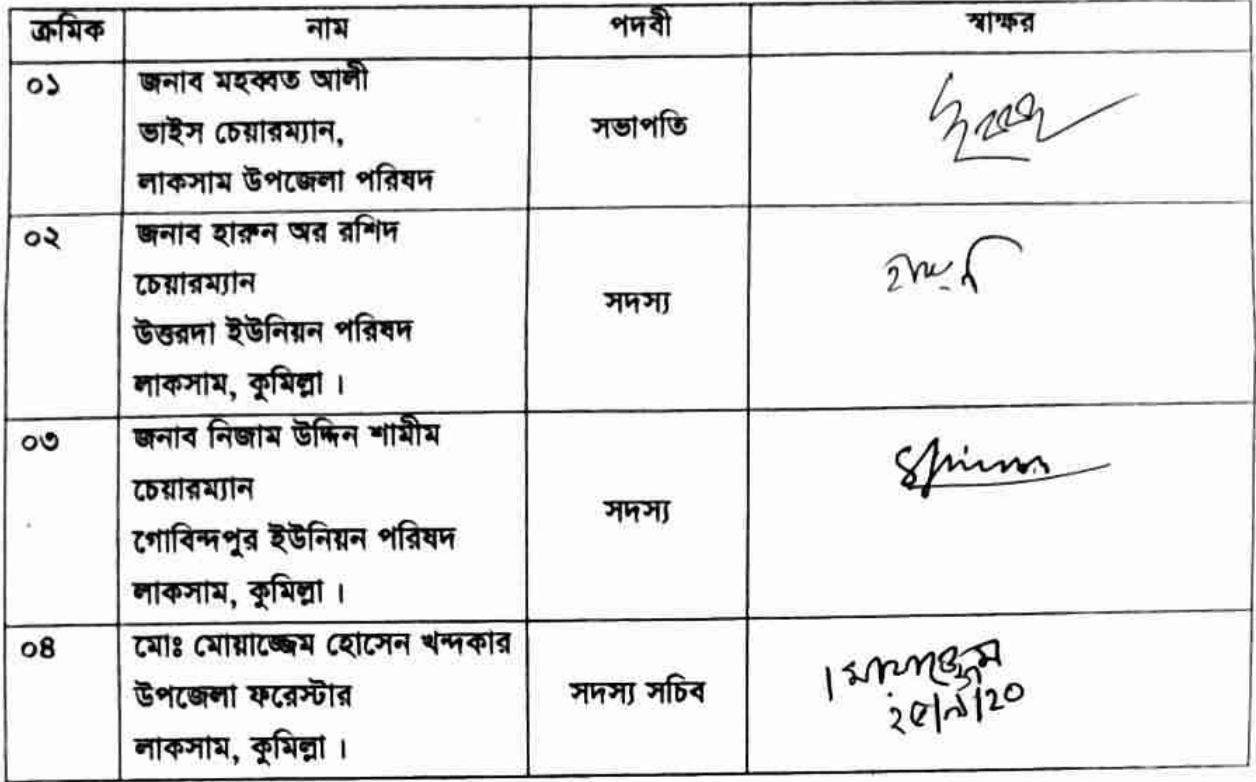 ক্রমিক নাম পদবী স্বাক্ষর
০১ জনাব মহব্বত আলী
ভাইস চেয়ারম্যান,
লাকসাম উপজেলা পরিষদ
সভাপতি
০২ জনাব হারুন অর রশিদ
চেয়ারম্যান
উত্তরদা ইউনিয়ন পরিষদ
লাকসাম, কুমিল্লা ।
সদস্য
০৩ জনাব নিজাম উদ্দিন শামীম
চেয়ারম্যান
গোবিন্দপুর ইউনিয়ন পরিষদ
লাকসাম, কুমিল্লা ।
সদস্য
০৪ মোঃ মোয়াজ্জেম হোসেন খন্দকার
উপজেলা ফরেস্টার
লাকসাম, কুমিল্লা ।
সদস্য সচিব